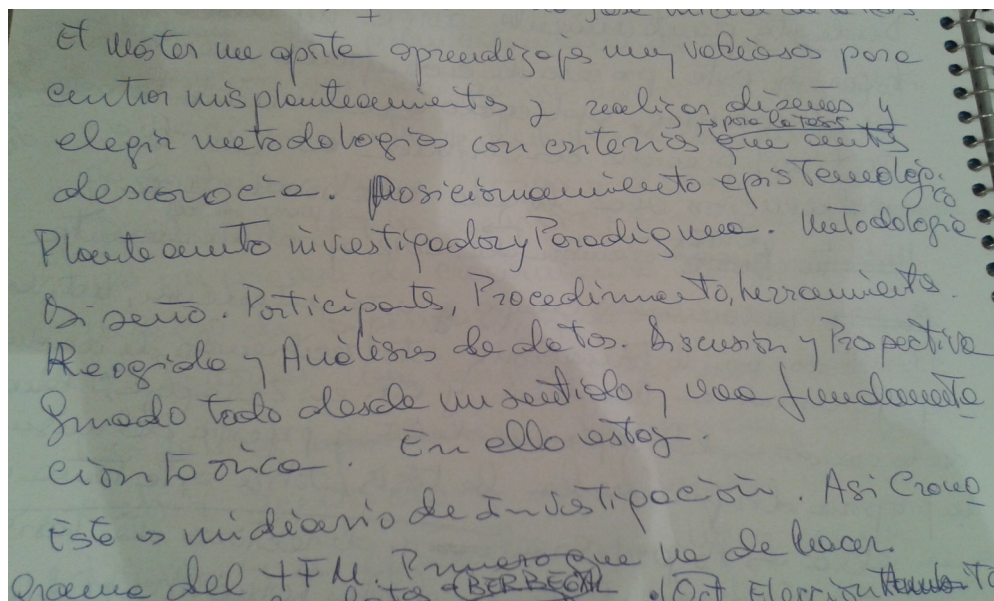 El master me aporta aprendizajes muy valiosos para
centrar mis planteamientos y realizar diseños y
para la tesis
elegir metodologías con criterios que antes
desconocía. Posicionamiento epistemológico
Planteamiento investigador y Paradigma. Metodología
Diseño. Participantes, Procedimiento, herramienta.
Recogida y Análisis de datos. Discusión y Prospectiva
todo desde un sentido y una fundamenta
ción teórica. En ello estoy.
Este es mi diario de Investigación. Asi Crono
grama del TFM. Primero que ha de hacer.